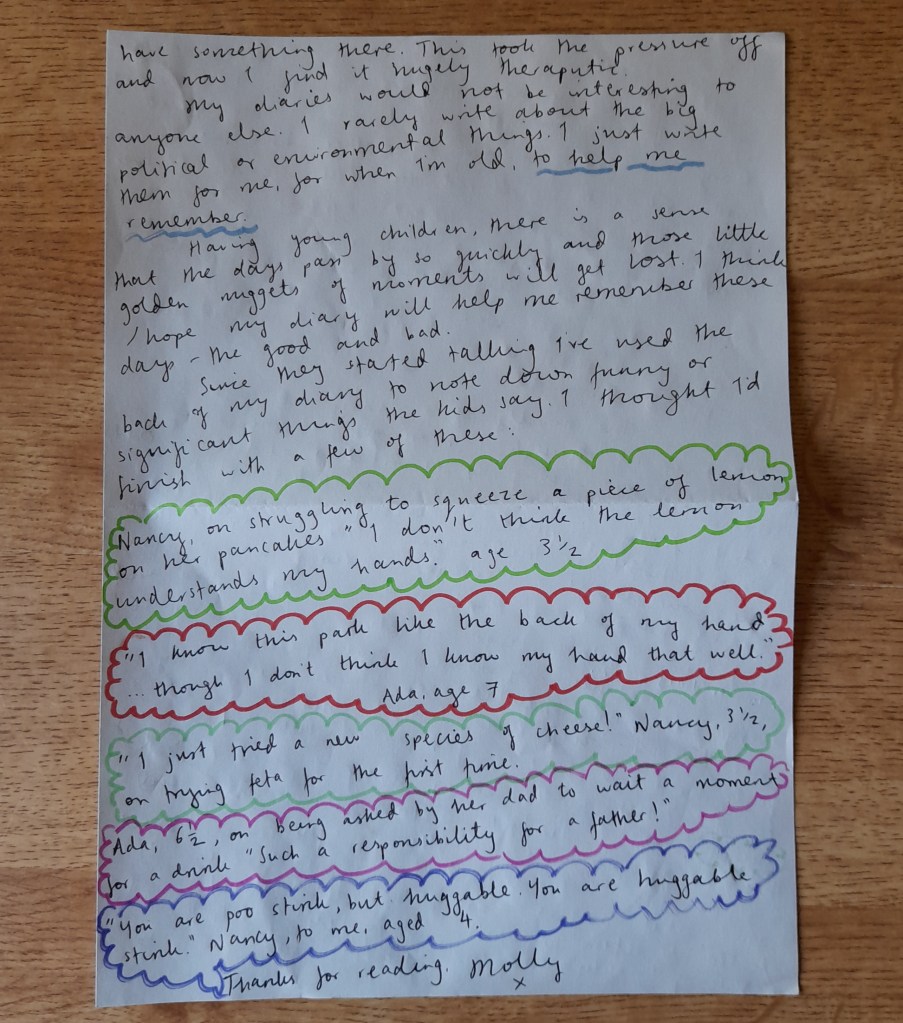 have something there. This took the pressure off
and now I find it hugely theraputic.
My diaries would not be interesting to
anyone else. I rarely write about the big
political or environmental things. I just write
them for me, for when I'm old, to help me
remember.
Having young children, there is a sense
that the days pass by so quickly and those little
golden nuggets of moments will get lost. I think
/hope my diary will help me remember these
days - the good and bad.
Since they started talking I've used the
back of my diary to note down funny or
significant things the kids say. I thought I'd
finish with a few of these:
Nancy, on struggling to squeeze a piece of lemon
on her pancakes "I don't think the lemon
understands my hands." age 3 1/2
"I know this park like the back of my hand
... though I don't think I know my hand that well."
Ada, age 7
"I just tried a new species of cheese!" Nancy, 3 1/2,
on trying feta for the first time.
Ada, 6 1/2, on being asked by her dad to wait a moment
for a drink "Such a responsibility for a father!"
"You are poo stink, but huggable. You are huggable
stink." Nancy, to me, aged 4.
Thanks for reading. Molly
x